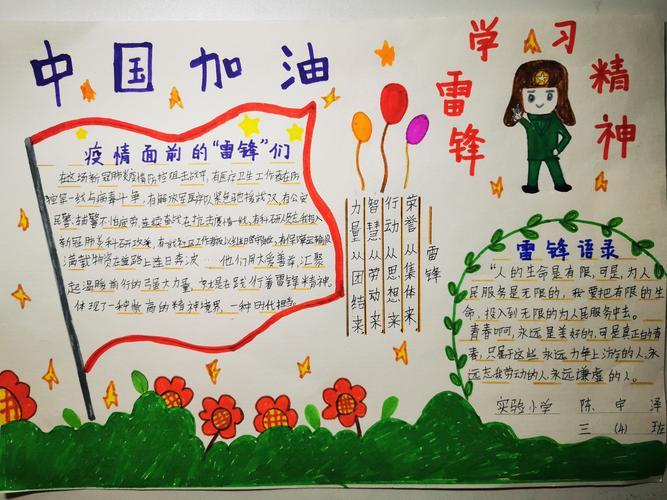 中国加油
学习
雷锋
精神
疫情面前的“雷锋”们
在这场新冠肺炎疫情防控阻击战中，有医疗卫生工作者在防
控第一线与病毒斗争，有解放军医疗队紧急驰援武汉，有公安
民警、辅警不怕疲劳、连续奋战在抗击疫情一线，有科研人员
新冠肺炎科研攻关，有
满载物资在铁路上连日奔波……他们用大爱善举，汇聚
起温暖前行的强大力量，
体现了一种崇高的精神境界，一种时代担当。
荣誉从集体来
行动从思想来
智慧从劳动来
力量从团结来
雷锋
雷锋语录
“人的生命是有限，可是，为人
民服务是无限的，我要把有限的生
命，投入到无限的为人民服务中去。
青春啊，永远是美好的，可是真正的青
春，只属于这些永远力争上游的人，永
远忘我劳动的人，永远谦虚的人。
实验小学 陈 宇 泽
三 (4) 班